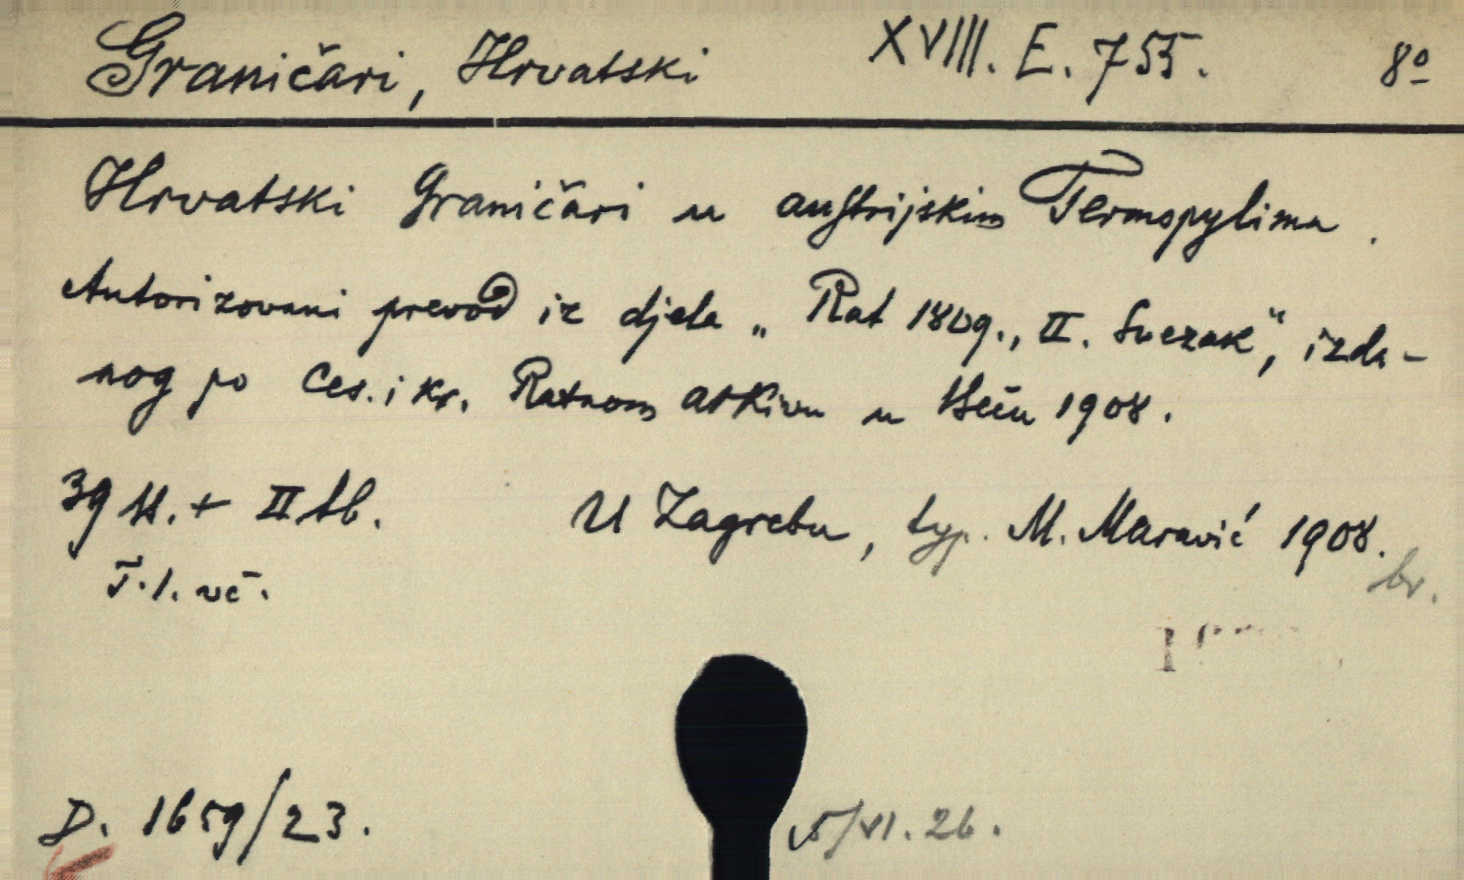 Graničari, Hrvatski XVIII. E. 755. 8º
Hrvatski Graničari u austrijskim Termopylima.
Autorizovani prevod iz djela „Rat 1809., II. Svezak“, izda-
nog po Ces. i kr. Ratnom arkivu u Beču 1908.
39 st. + II tb. U Zagrebu, typ. M. Maravić 1908.
br.
D. 1659/23. 5/VI. 26.